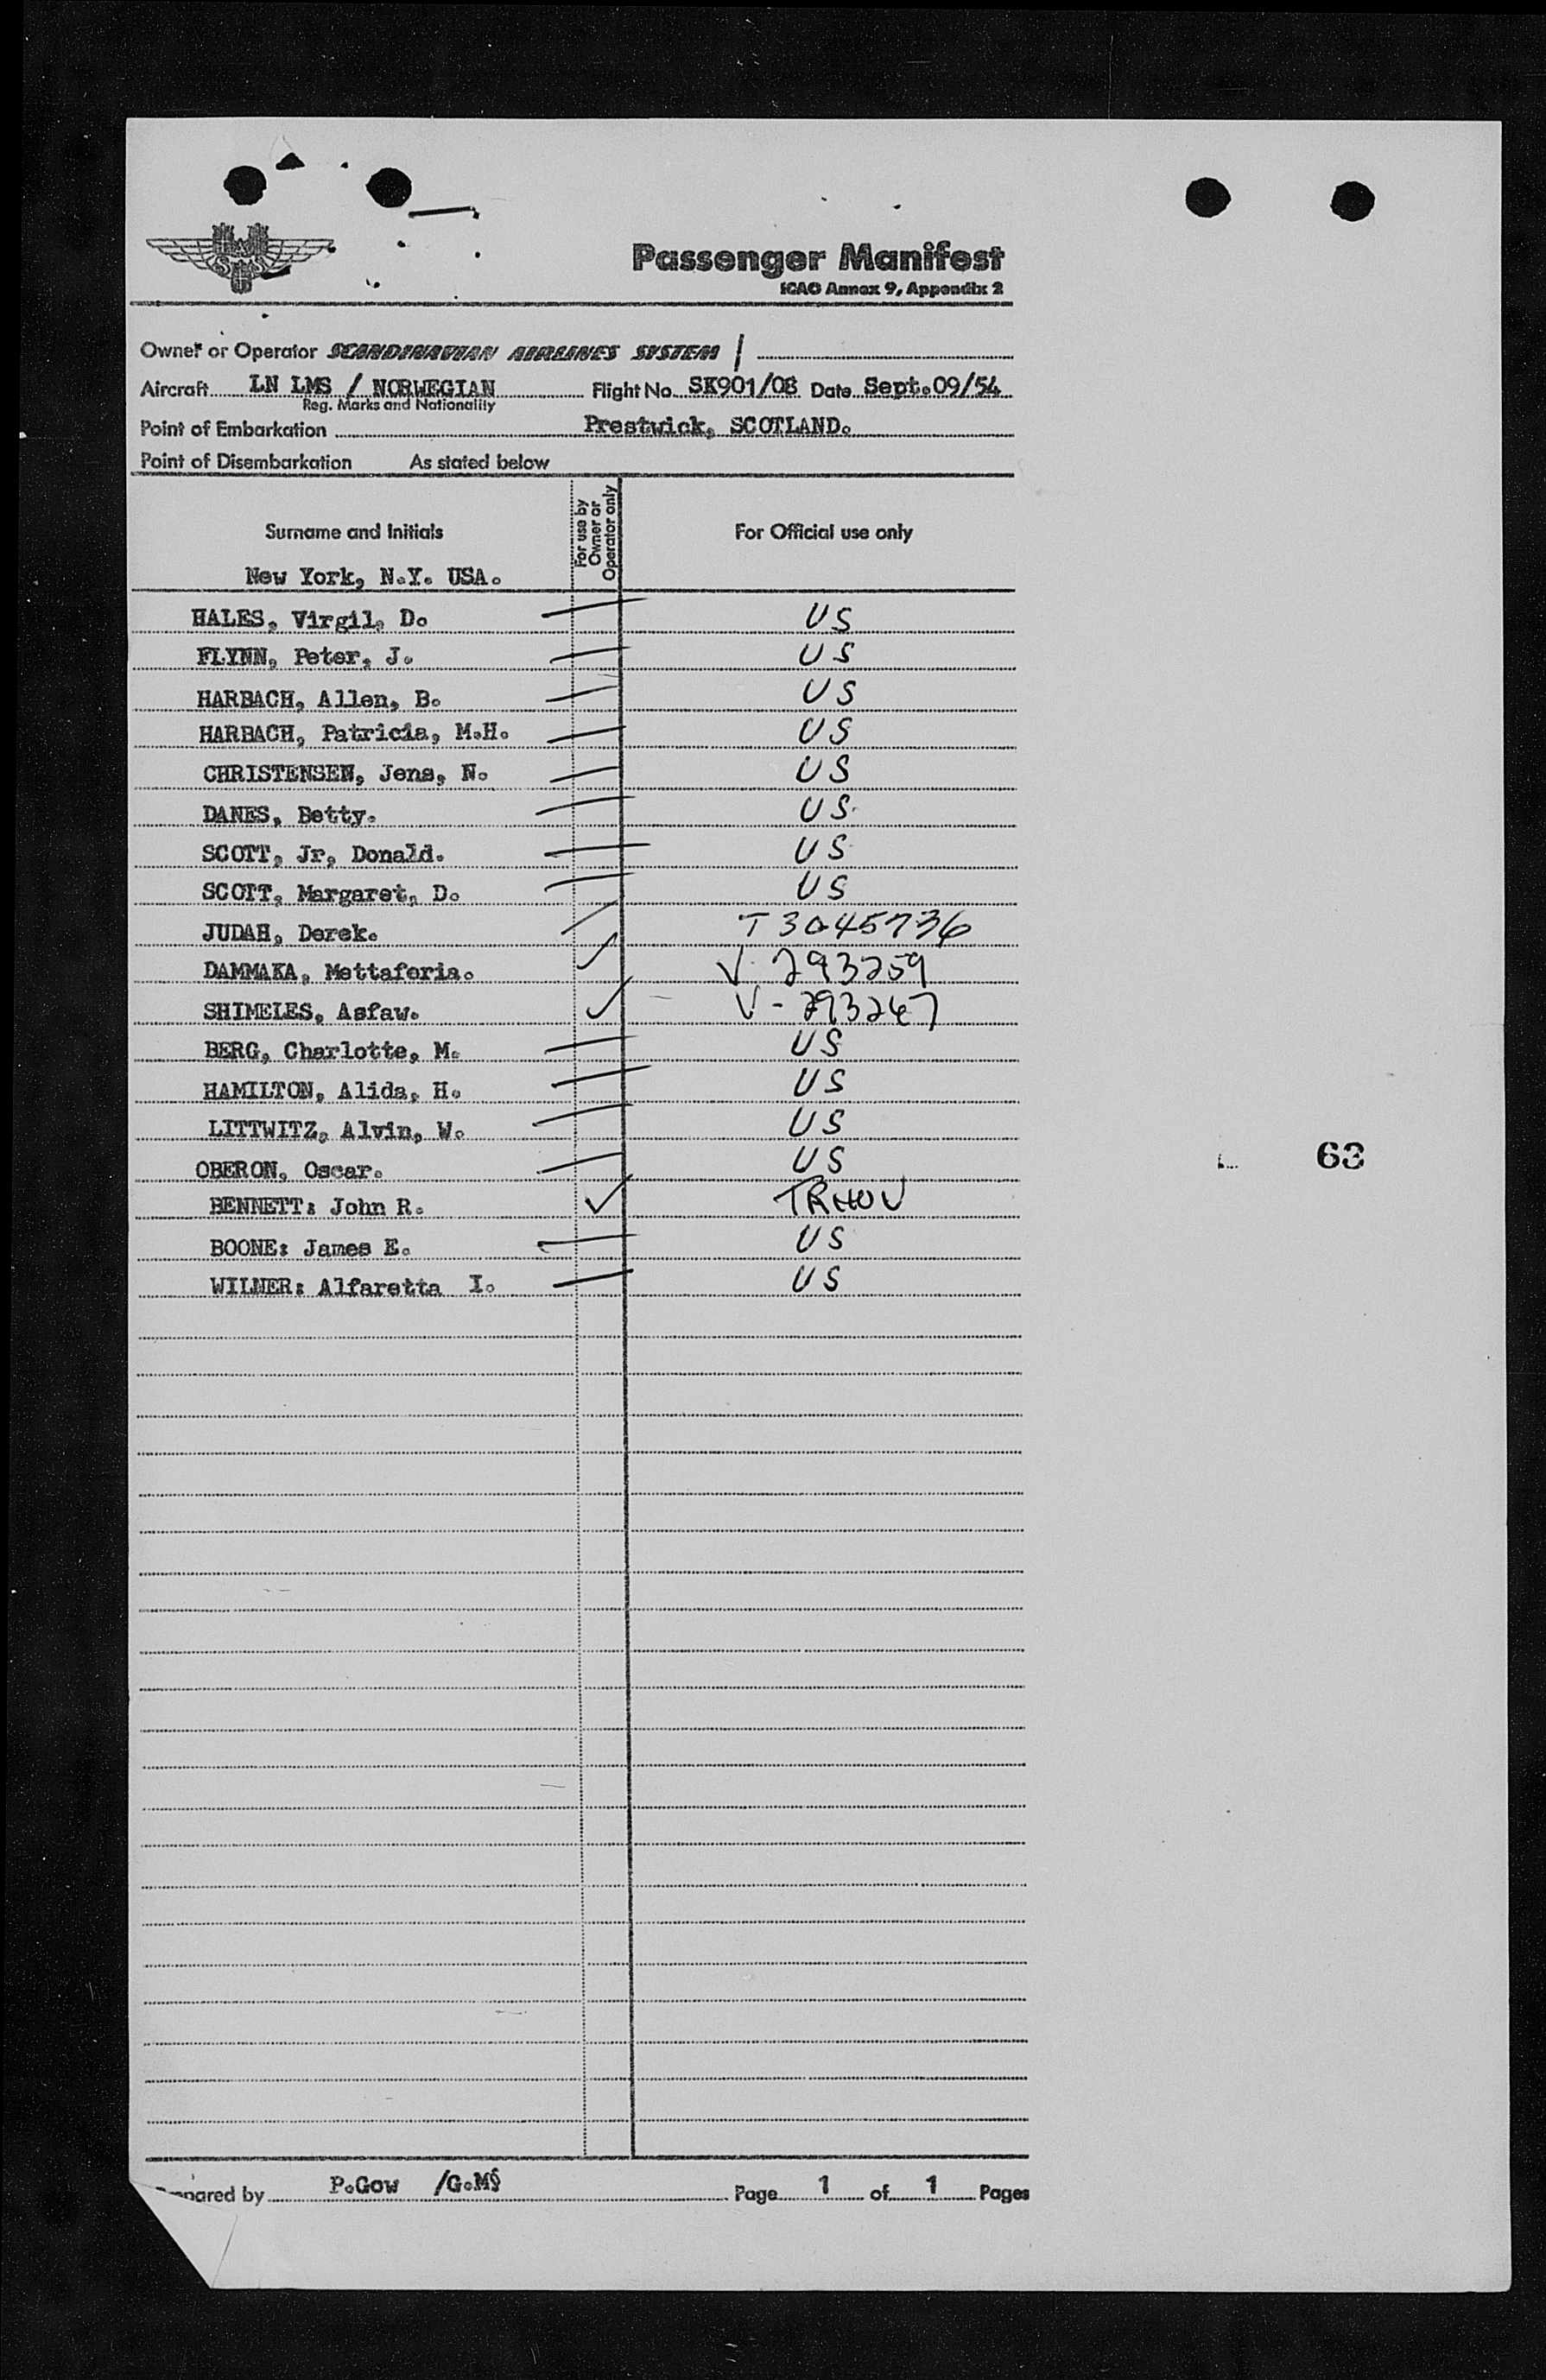 SAS
Passenger Manifest
ICAO Annex 9, Appendix 2
Owner or Operator SCANDINAVIAN AIRLINES SYSTEM /
Aircraft LN LMS / NORWEGIAN Flight No. SK901/08 Date Sept.09/54
Reg. Marks and Nationality
Point of Embarkation Prestwick, SCOTLAND.
Point of Disembarkation As stated below
Surname and Initials For use by Owner or Operator only For Official use only
New York, N.Y. USA.
HALES, Virgil, D. US
FLYNN, Peter, J. US
HARBACH, Allen, B. US
HARBACH, Patricia, M.H. US
CHRISTENSEN, Jens, N. US
DANES, Betty. US
SCOTT, Jr, Donald. US
SCOTT, Margaret, D. US
JUDAH, Derek. T 3045736
DAMMAKA, Mettaferia. ✓ V-293259
SHIMELES, Asfaw. ✓ V-293247
BERG, Charlotte, M. US
HAMILTON, Alida, H. US
LITTWITZ, Alvin, W. US
OBERON, Oscar. US
BENNETT: John R. ✓
BOONE: James E. US
WILMER: Alfaretta I. US
63
Prepared by P.Gow /G.MS Page 1 of 1 Pages